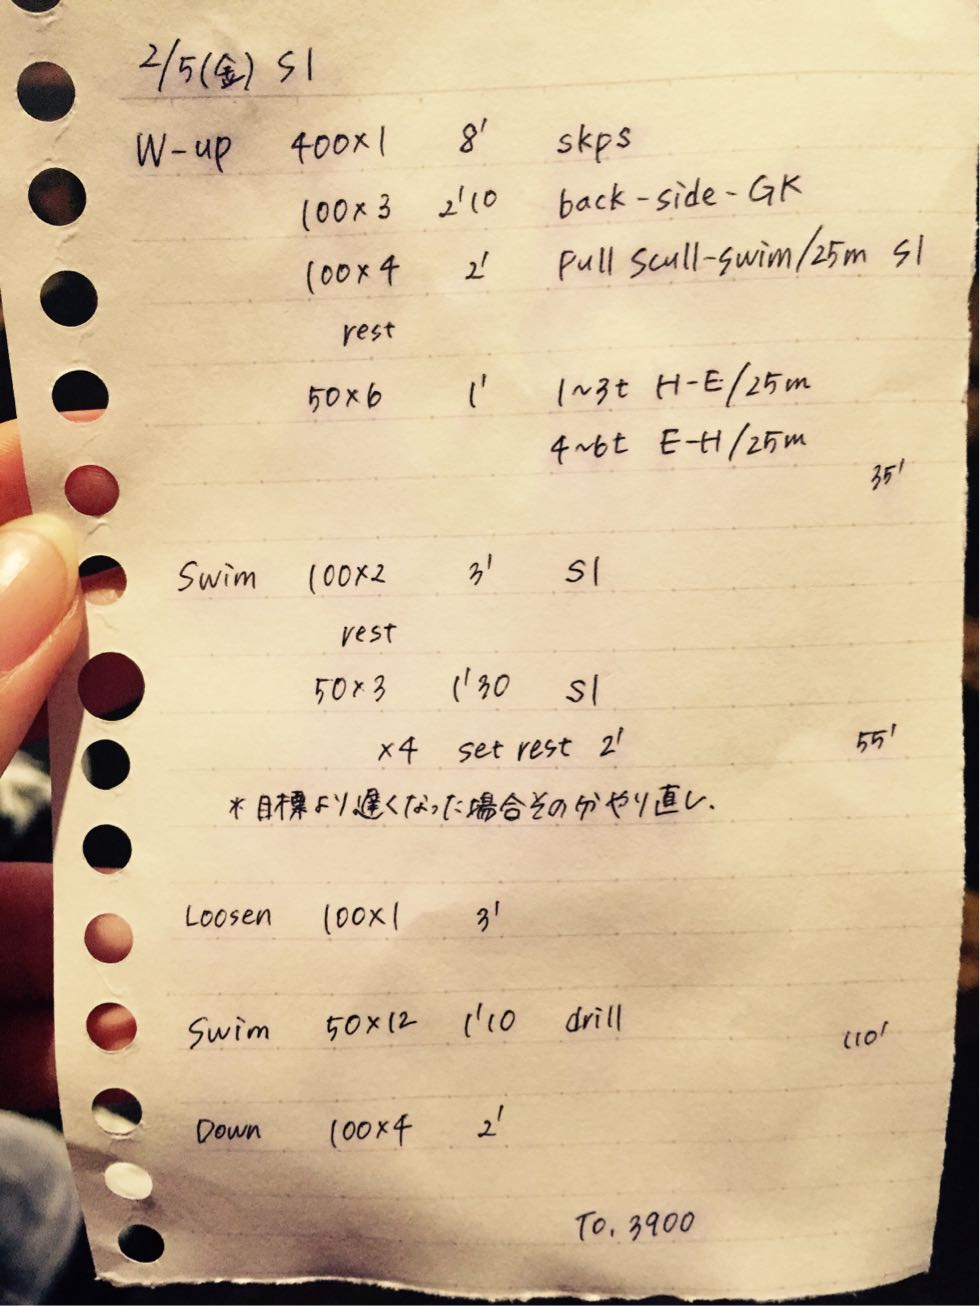 2/5(金) S1
W-up 400×1 8' skps
100×3 2'10 back-side-GK
100×4 2' pull scull-swim/25m S1
rest
50×6 1' 1~3t H-E/25m
4~6t E-H/25m
35'
Swim 100×2 3' S1
rest
50×3 1'30 S1
×4 set rest 2' 55'
*目標より遅くなった場合その分やり直し.
Loosen 100×1 3'
Swim 50×12 1'10 drill
110'
Down 100×4 2'
TO. 3900